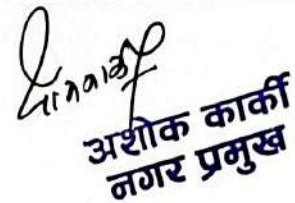 अशोक कार्की
नगर प्रमुख